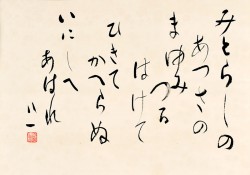 みとらしの
あつさの
まゆみつる
はけて
ひきて
かへらぬ
いにしへ
あはれ
八一